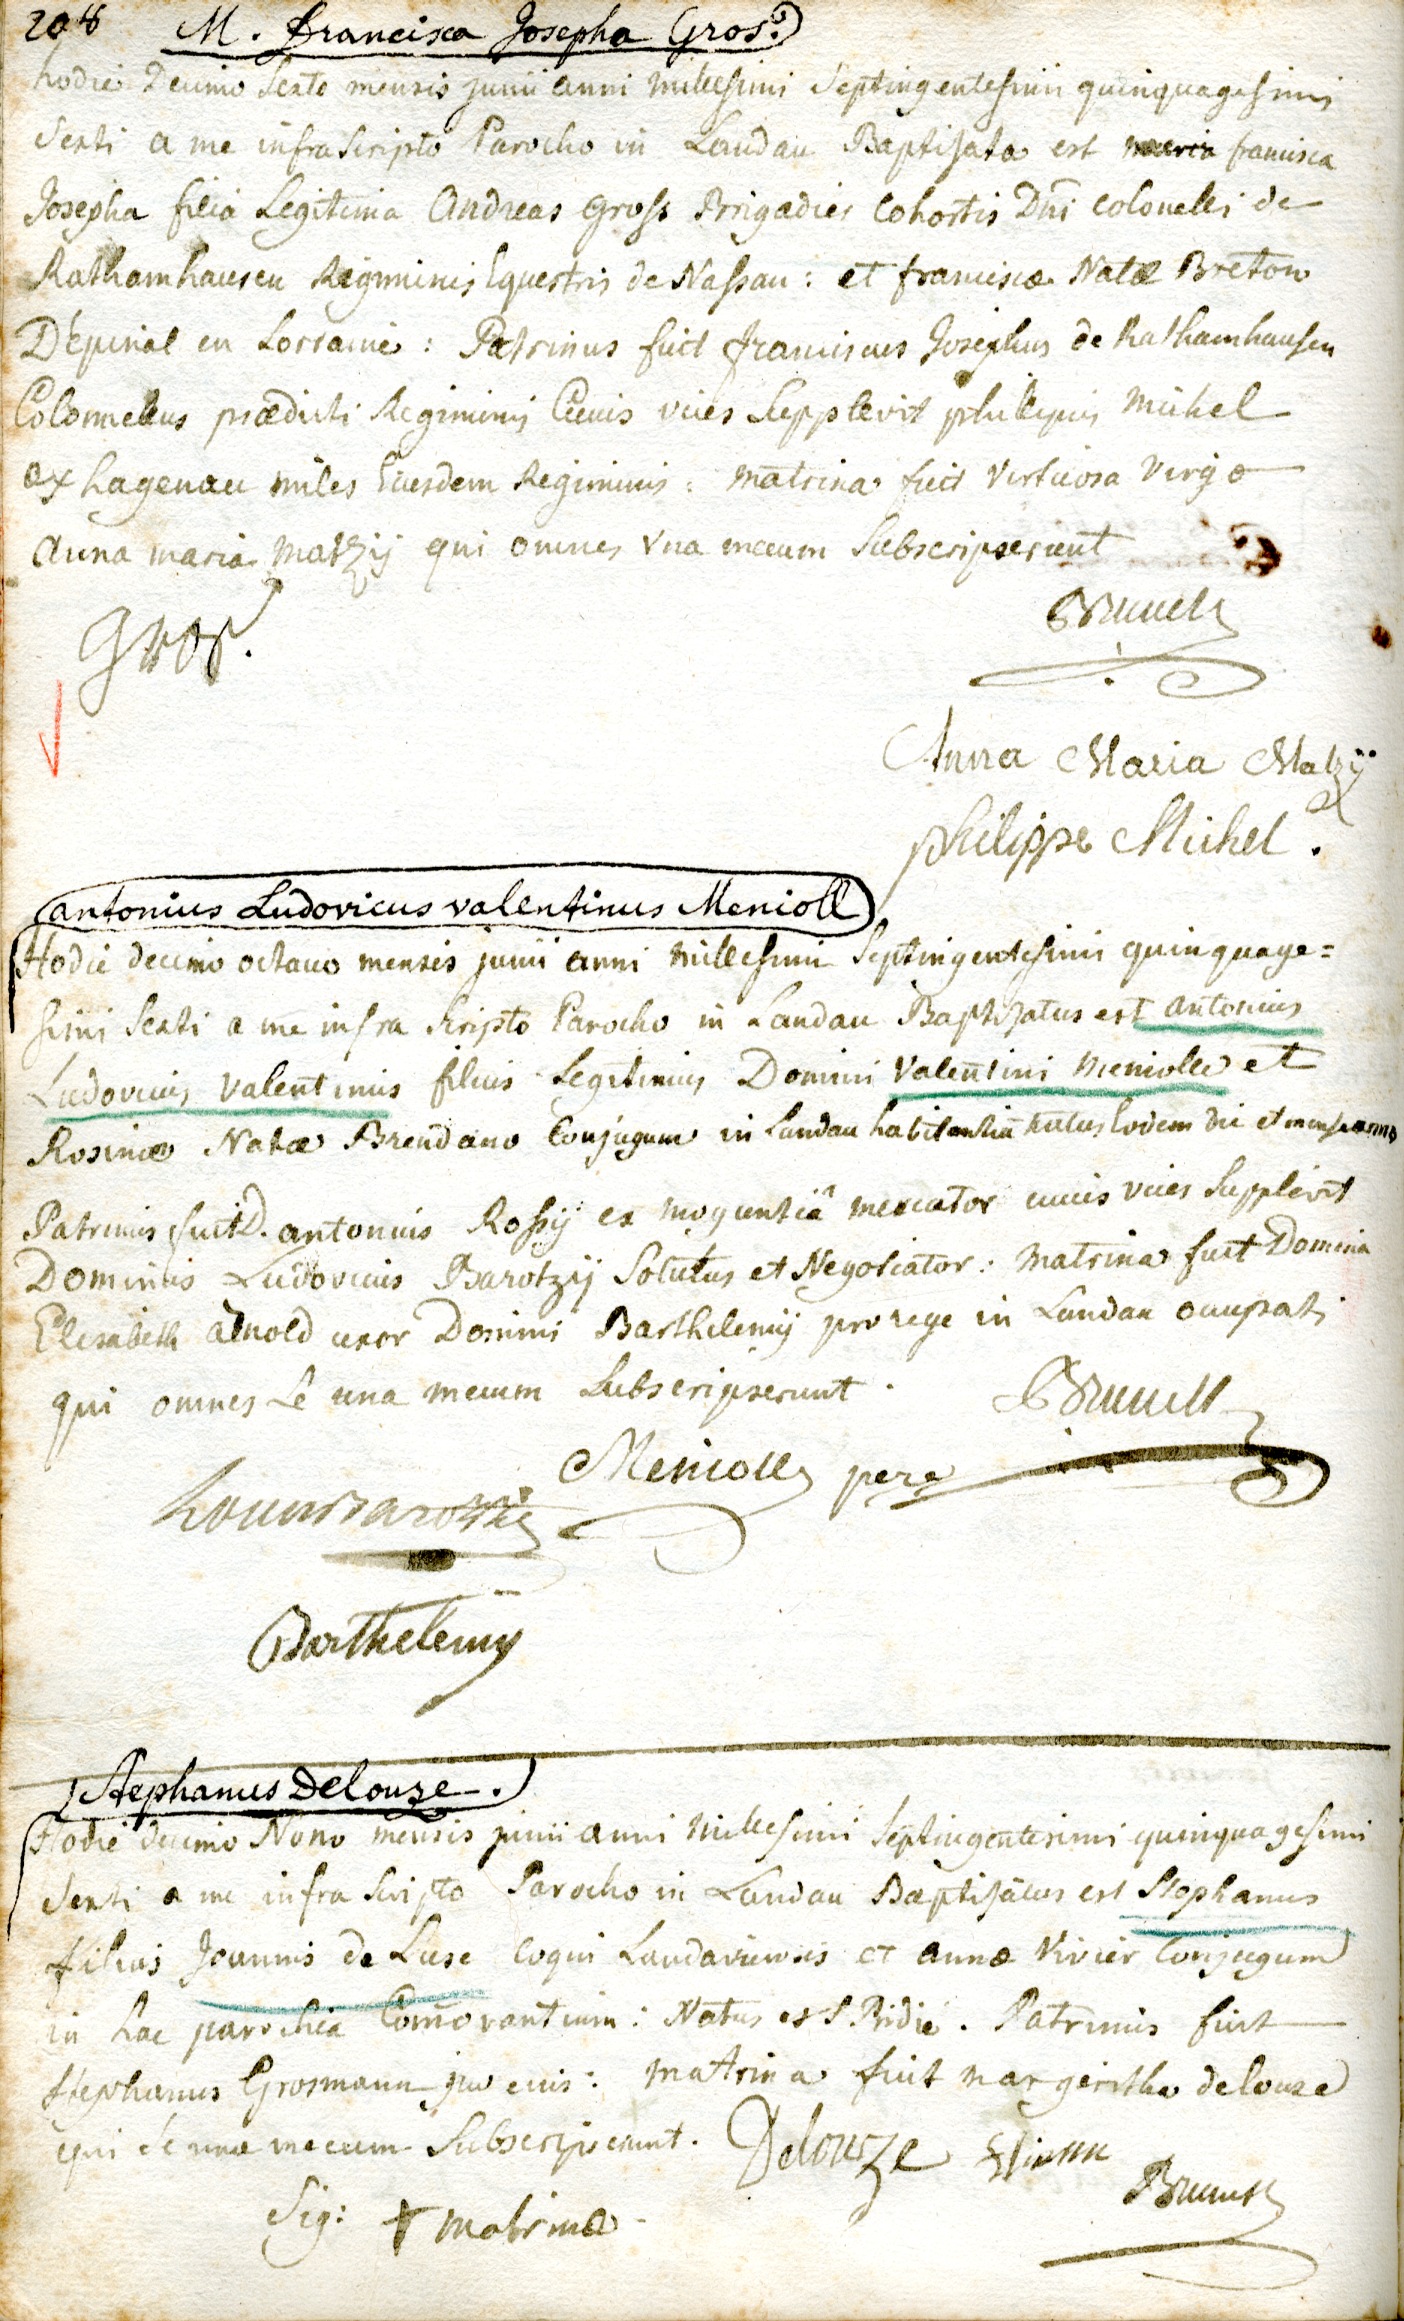 208 M. Francisca Josepha Gros.
hodie Decimo Sexto mensis junii anni millesimi Septingentesimi quinquagesimi
Sexti a me infra Scripto Parocho in Landau Baptisata est maria francisca
Josepha filia Legitima Andreas Gross Brigadier Cohortis Dni colonelli de
Rathamhausen Regiminis Equestris de Nassau : et franciscæ Natæ Breton
D'Epinal en Lorraine : Patrinus fuit franciscus Josephus de Rathamhausen
Colonnellus prædicti Regiminis Cuius vices Supplevit philippus Michel
ex hagenau miles Eiusdem Regiminis : matrina fuit Virtuosa Virgo
Anna maria Matzij qui omnes Una mecum Subscripserunt
Gros.
Anna Maria Matzÿ
philippe Michel .
antonius Ludovicus valentinus Menioll
Hodie decimo octavo mensis junii anni millesimi Septingentesimi quinquage=
simi Sexti a me infra Scripto Parocho in Landau Baptisatus est antonius
Ludovicus Valentinus filius Legitimus Domini Valentini Meniolle et
Rosinæ Natæ Brendano Conjugum in Landau habitantiū natus Eodem die et mense anno
Patrinus fuit D. antonius Rossÿ ex moguntiâ mercator cuius vices Supplevit
Dominus Ludovicus Barotzÿ Solutus et Negotiator : Matrina fuit Domina
Elisabeth Arnold uxor Domini Barthelemÿ pro rege in Landau occupati
qui omnes Se una mecum Subscripserunt .
Meniolle pere
Barthelemy
Stephanus Delouze .
Hodie decimo Nono mensis junii anni Millesimi Septingentesimi quinquagesimi
Sexti a me infra Scripto Parocho in Landau Baptisatus est Stephanus
filius Joannis de Luse Coqui Landaviensis et annæ Vivier Conjugum
in hac parochia Com̄orantium : Natus est Pridie . Patrinus fuit
Stephanus Grosmann juvenis : matrina fuit Margeritha delouze
qui Se una mecum Subscripserunt . Delouze
Sig: + matrinæ